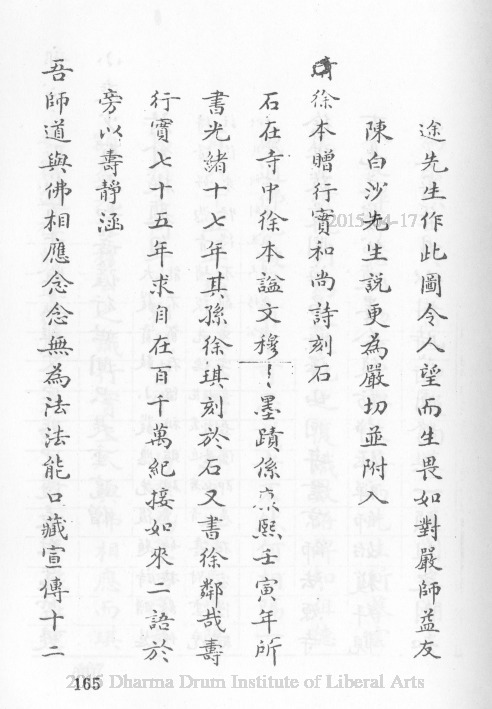 途先生作此圖令人望而生畏如對嚴師益友
陳白沙先生說更為嚴切並附入
清徐本贈行實和尚詩刻石
石在寺中徐本謚文穆墨蹟係康熙壬寅年所
書光緒十七年其孫徐琪刻於石又書徐鄰哉壽
行實七十五年求自在百千萬紀接如來一語於
旁以壽靜涵
吾師道與佛相應念念無為法法能口藏宣傳十二
2015-04-17
165
2015 Dharma Drum Institute of Liberal Arts